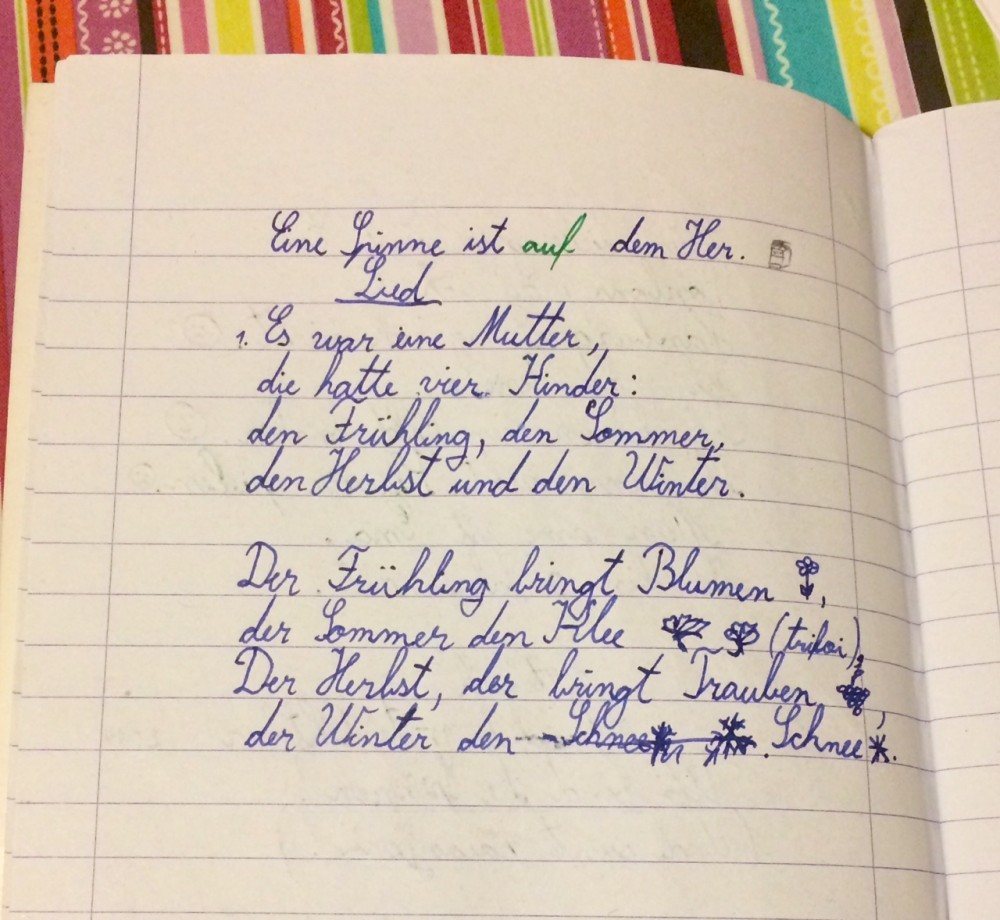 Eine Spinne ist auf dem Her.
Lied
1. Es war eine Mutter,
die hatte vier Kinder:
den Frühling, den Sommer,
den Herbst und den Winter.
Der Frühling bringt Blumen,
der Sommer den Klee (trifoi),
Der Herbst, der bringt Trauben,
der Winter den Schnee. Schnee.